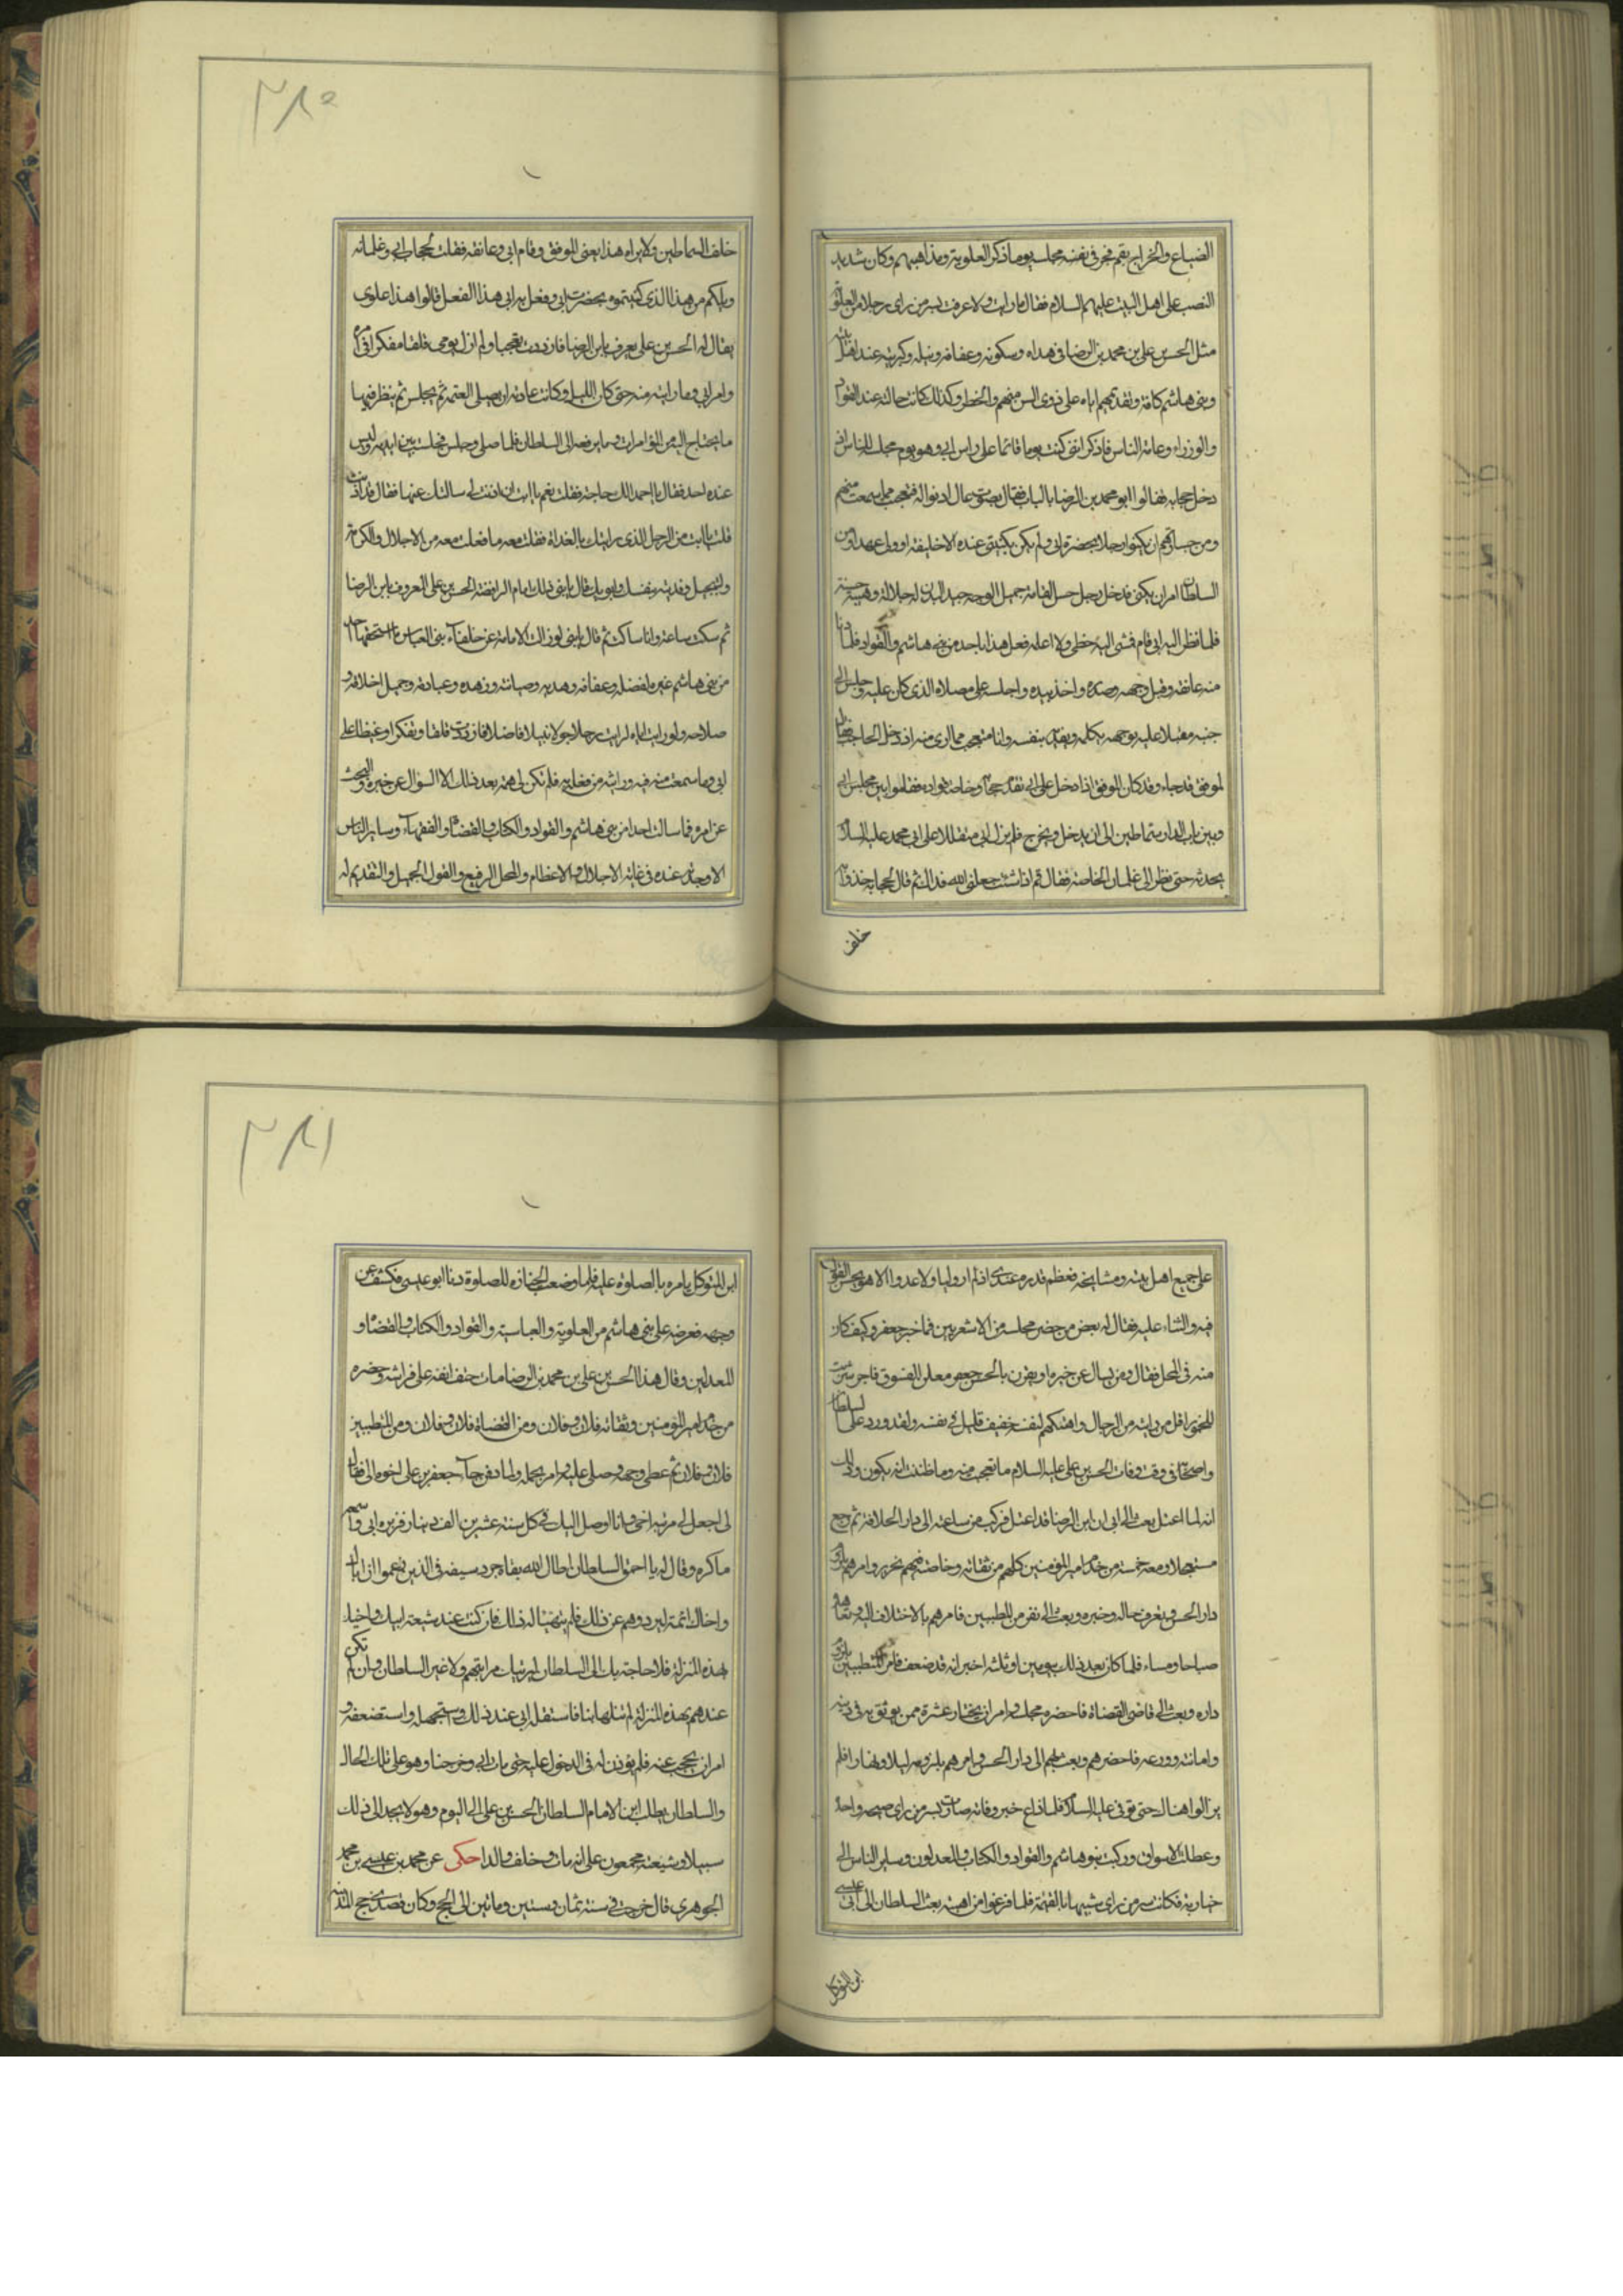 الضياع والخراج بقم فجری فی نفسه مجلسه یوما ذکر العلویة ومذاهبهم وکان شدید
النصب علی اهل البیت علیهم السلام فقال ما رایت ولا عرفت بسر من رای رجلا من العلویة
مثل الحسن علی بن محمد بن الرضا فی هداه وسکونه وعفافه ونبله وکبرته عند اهل بیته
وبنی هاشم کافة وتقدیمهم ایاه علی ذوی السن منهم والخطر وکذلک کانت حاله عند القواد
والوزراء وعامة الناس فاذکر اننی کنت یوما قائما علی راس ابی وهو یوم مجلسه للناس اذ
دخل حجابه فقالوا ابو محمد بن الرضا بالباب فقال بصوت عال ادنوا له فتعجبت مما سمعت منهم
ومن جسارتهم ان یکنوا رجلا بحضرة ابی ولم یکن یکنی عنده الا خلیفة او ولی عهد او من
السلطان امر ان یکنی فدخل رجل حسن القامة جمیل الوجه جید البدن له جلالة وهیبة حسنة
فلما نظر الیه ابی قام فمشی الیه خطی ولا اعلمه فعل هذا باحد من بنی هاشم والقواد فلما دنا
منه عانقه وقبل وجهه وصدره واخذ بیده واجلسه علی مصلاه الذی کان علیه وجلس الی
جنبه مقبلا علیه بوجهه یکلمه ویفدیه بنفسه وانا متعجب مما اری منه اذ دخل الحاجب فقال
لموفق قد جاء وقد کان الموفق اذا دخل علی ابی تقدم حجابه وخاصة قواده فقاموا بین مجلس ابی
وبین باب الدار سماطین الی ان یدخل ویخرج فلم یزل ابی مقبلا علی ابی محمد علیه السلام
یحدثه حتی نظر الی غلمان الخاصة فقال قم اذا شئت جعلنی الله فداک ثم قال لحجابه خذوا به
خلف
٢٨٥
خلف السماطین ولا یراه هذا یعنی الموفق وقام ابی وعانقه فقلت لحجاب ابی وغلمانه
ویلکم من هذا الذی کنیتموه بحضرة ابی وفعل به ابی هذا الفعل قالوا هذا علوی
یقال له الحسن علی یعرف بابن الرضا فازددت تعجبا ولم ازل یومی قلقا مفکرا فی امره
وامر ابی وما رایته منه حتی کان اللیل وکانت عادته ان یصلی العتمة ثم یجلس ثم ینظر فیما
ما یحتاج الیه من المؤامرات وما یرفعه الی السلطان فلما صلی وجلس فجلست بین یدیه ولیس
عنده احد فقال یا احمد الک حاجة فقلت نعم یا ابت ان اذنت لی سالتک عنها فقال قد اذنت
قلت یا ابت من الرجل الذی رایتک بالغداة فقلت معه ما فعلت معه من الاجلال والکرامة
والتبجیل وفدیته بنفسک وابویک قال یا بنی ذلک امام الرافضة الحسن علی المعروف بابن الرضا
ثم سکت ساعة وانا ساکت ثم قال یا بنی لو زالت الامامة عن خلفاء بنی العباس ما استحقها احد
من بنی هاشم غیره لفضله وعفافه وهدیه وصیانته وزهده وعبادته وجمیل اخلاقه و
صلاحه ولو رایت اباه لرایت رجلا جزلا نبیلا فاضلا فازددت قلقا وتفکرا وغیظا علی
ابی وما سمعت منه فیه ورایته من فعله به فلم تکن لی همة بعد ذلک الا السؤال عن خبره والبحث
عن امره فما سالت احدا من بنی هاشم والقواد والکتاب والقضاة والفقهاء وسایر الناس
الا وجدته عنده فی غایة الاجلال والاعظام والمحل الرفیع والقول الجمیل والتقدیم له
علی جمیع اهل بیته ومشایخه فعظم قدره عندی اذ لم ار ولیا ولا عدوا الا هو یحسن القول
فیه والثناء علیه فقال له بعض من حضر مجلسه من الاشعریین فما خبر جعفر وکیف کان
منه فی المحل فقال ومن یسال عن خبره او یقرن بالحسن جعفر معلن الفسوق فاجر شریب
للخمور اقل من رایته من الرجال واهتکهم لنفسه خفیف قلیل فی نفسه ولقد ورد علی السلطان
واصحابه فی وقت وفات الحسن علی علیه السلام ما تعجبت منه وما ظننت انه یکون وذلک
انه لما اعتل بعث الی ابی ان ابن الرضا قد اعتل فرکب من ساعته الی دار الخلافة ثم رجع
مستعجلا ومعه خمسة من خدم امیر المؤمنین کلهم من ثقاته وخاصته فیهم نحریر وامرهم بلزوم
دار الحسن وتعرف حاله وخبره وبعث الی نفر من المطببین فامرهم بالاختلاف الیه وتعاهده
صباحا ومساء فلما کان بعد ذلک بیومین او ثلثة اخبر انه قد ضعف فامر المتطببین بلزوم
داره وبعث الی قاضی القضاة فاحضره مجلسه وامر ان یختار عشرة ممن یوثق به فی دینه
وامانته وورعه فاحضرهم وبعث بهم الی دار الحسن وامرهم بلزومه لیلا ونهارا فلم
یزالوا هناک حتی توفی علیه السلام فلما ذاع خبر وفاته صارت بسر من رای صیحة واحدة
وعطلت الاسواق ورکبت بنو هاشم والقواد والکتاب والمعدلون وسایر الناس الی
جنازته فکانت سر من رای شبیها بالقیامة فلما فرغوا من تهیئته بعث السلطان الی ابی عیسی
ابن المتوکل
٢٨١
ابن المتوکل یامره بالصلوة علیه فلما وضعت الجنازة للصلوة دنا ابو عیسی فکشف عن
وجهه فعرضه علی بنی هاشم من العلویة والعباسیة والقواد والکتاب والقضاة و
المعدلین وقال هذا الحسن علی بن محمد بن الرضا مات حتف انفه علی فراشه وحضره
من خدم امیر المؤمنین وثقاته فلان وفلان ومن القضاة فلان وفلان ومن المتطببین
فلان وفلان ثم غطی وجهه وصلی علیه وامر بحمله ولما دفن جاء جعفر بن علی اخوه الی ابی فقال
لی اجعل لی مرتبة اخی وانا اوصل الیک فی کل سنة عشرین الف دینار فزبره ابی واسمعه
ما کره وقال له یا احمق السلطان اطال الله بقاه جرد سیفه فی الذین زعموا ان اباک
واخاک ائمة لیردوهم عن ذلک فلم یتهیأ له ذلک فان کنت عند شیعة ابیک واخیک
بهذه المنزلة فلا حاجة بک الی السلطان لیرتبک مراتبهم ولا غیر السلطان وان لم تکن
عندهم بهذه المنزلة لم تنلها بنا فاستقله ابی عند ذلک واستجهله واستضعفه و
امر ان یحجب عنه فلم یؤذن له فی الدخول علیه حتی مات ابی وخرجنا وهو علی تلک الحال
والسلطان یطلب ابن الامام السلطان الحسن علی الی الیوم وهو لا یجد الی ذلک
سبیلا وشیعته مجمعون علی انه مات وخلف والدا حکی عن محمد بن عیسی بن محمد
الجوهری قال خرجت فی سنة ثمان وستین وماتین الی الحج وکان قصدی حج المدینة